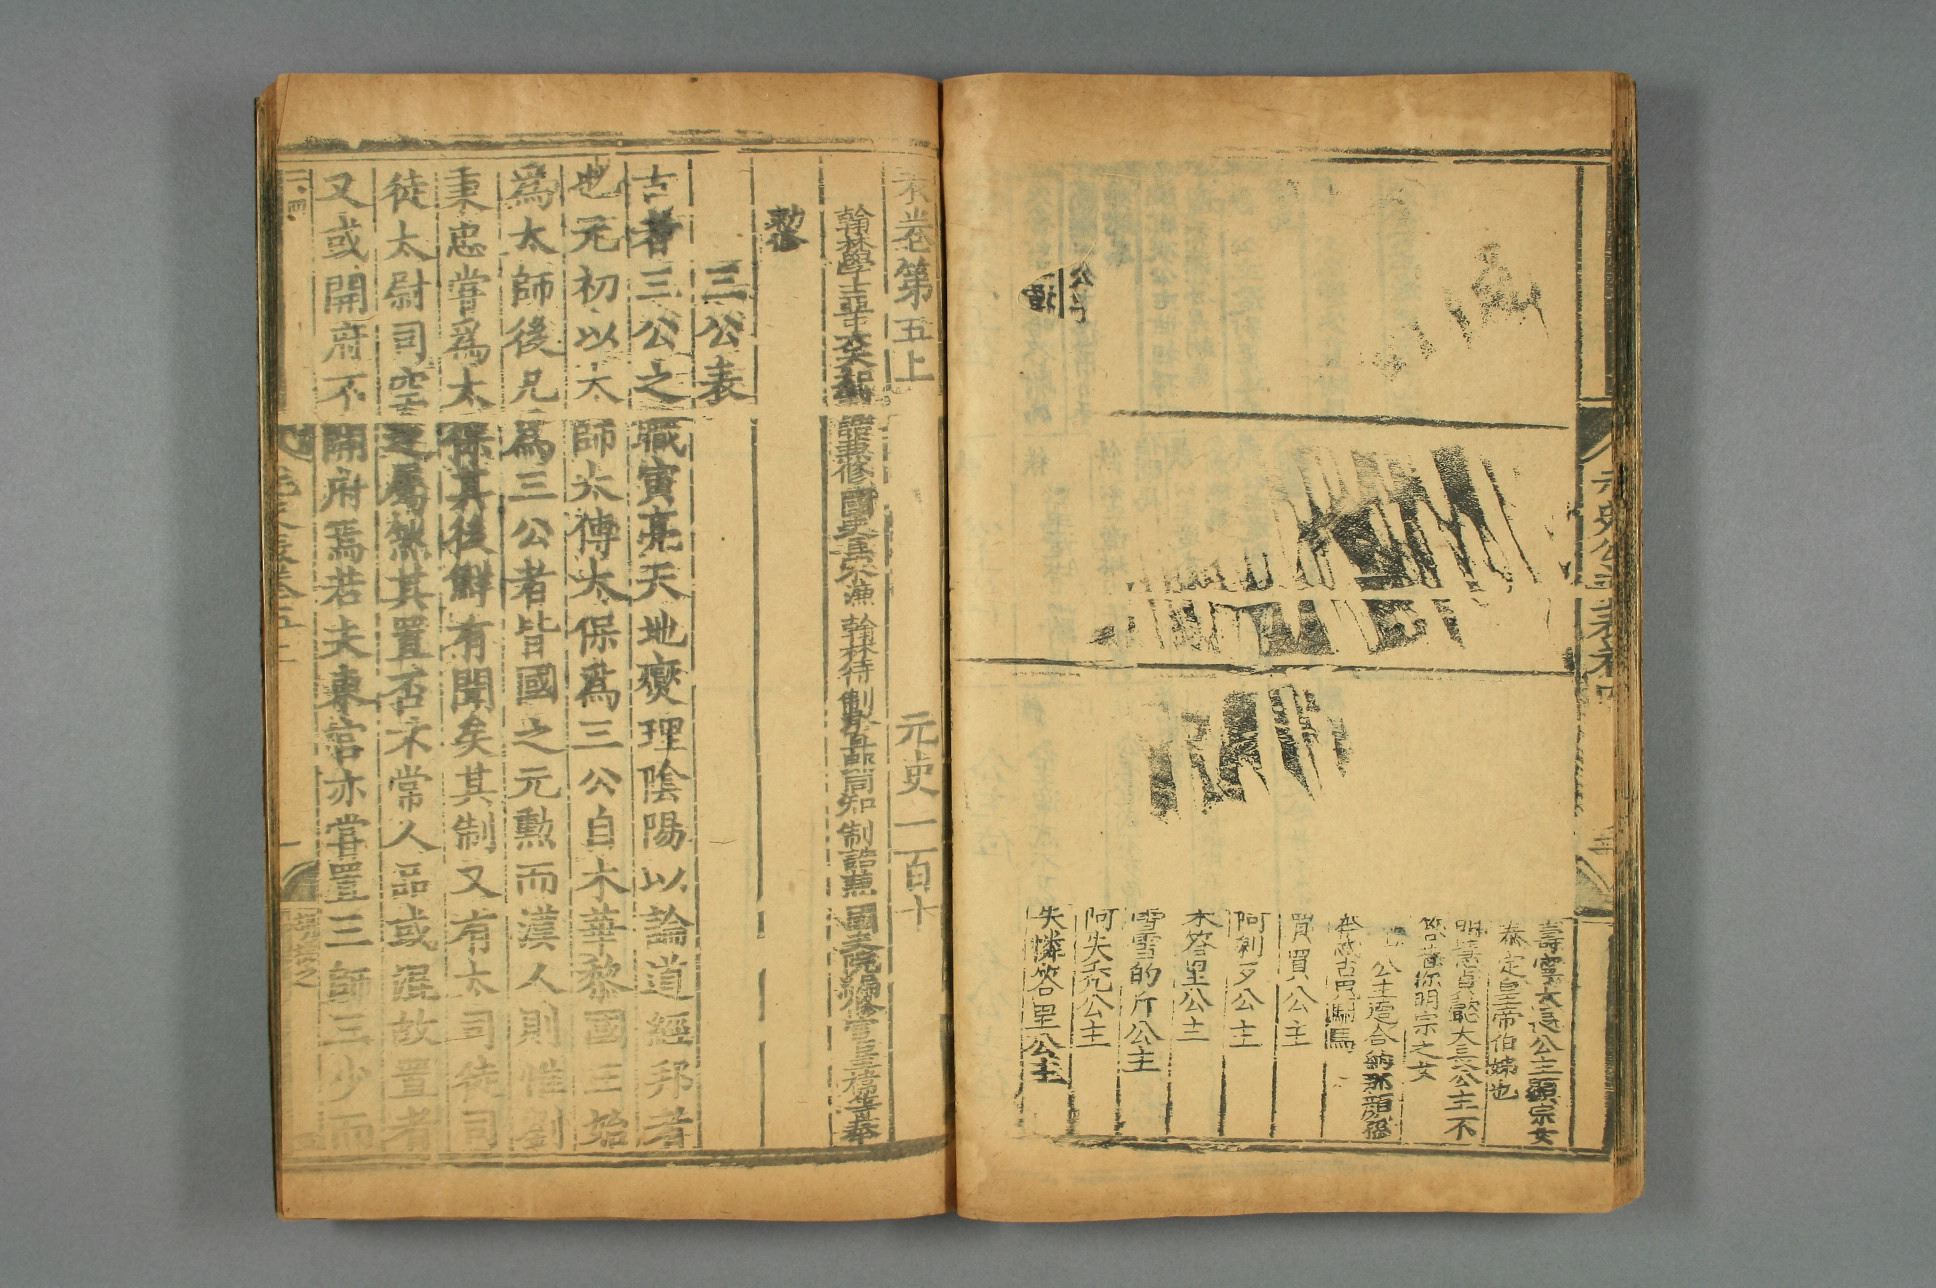 壽寧大長公主顯宗女
泰定皇帝伯姊也
明慧貞懿大長公主不
答昔你明宗之女
公主適合納那顏孫
古思駙馬
買買公主
阿剌歹公主
本答里公主
雪雪的斤公主
阿失禿公主
失憐答里公主
公主
表卷第五上 元史一百十
翰林學士亞中大夫知制誥兼修國史臣宋濂 翰林待制承直郎同知制誥兼國史院編修官臣王禕等奉
勑修
三公表
古者三公之職寅亮天地燮理陰陽以論道經邦者
也元初以太師太傅太保爲三公自木華黎國王始
爲太師後凡爲三公者皆國之元勳而漢人則惟劉
秉忠嘗爲太保其後鮮有聞矣其制又有太司徒司
徒太尉司空之屬然其置否不常人品或混故置者
又或開府不開府焉若夫東宮亦嘗置三師三少而
元史表卷五上